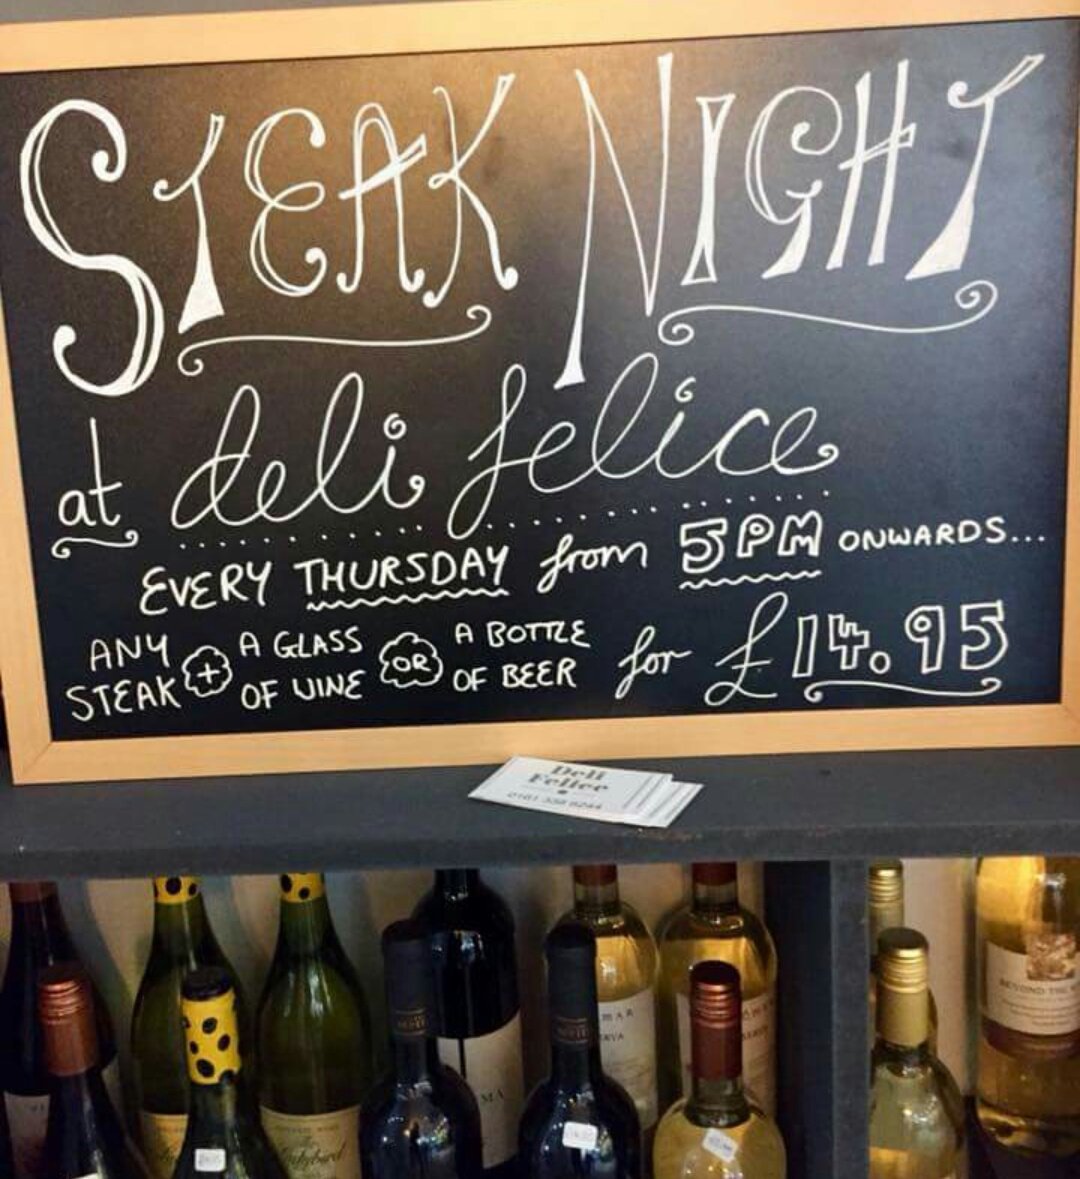 STEAK NIGHT
at deli felice
EVERY THURSDAY from 5PM ONWARDS...
ANY STEAK + A GLASS OF WINE OR A BOTTLE OF BEER for £14.95
Deli
Felice
BEYOND THE